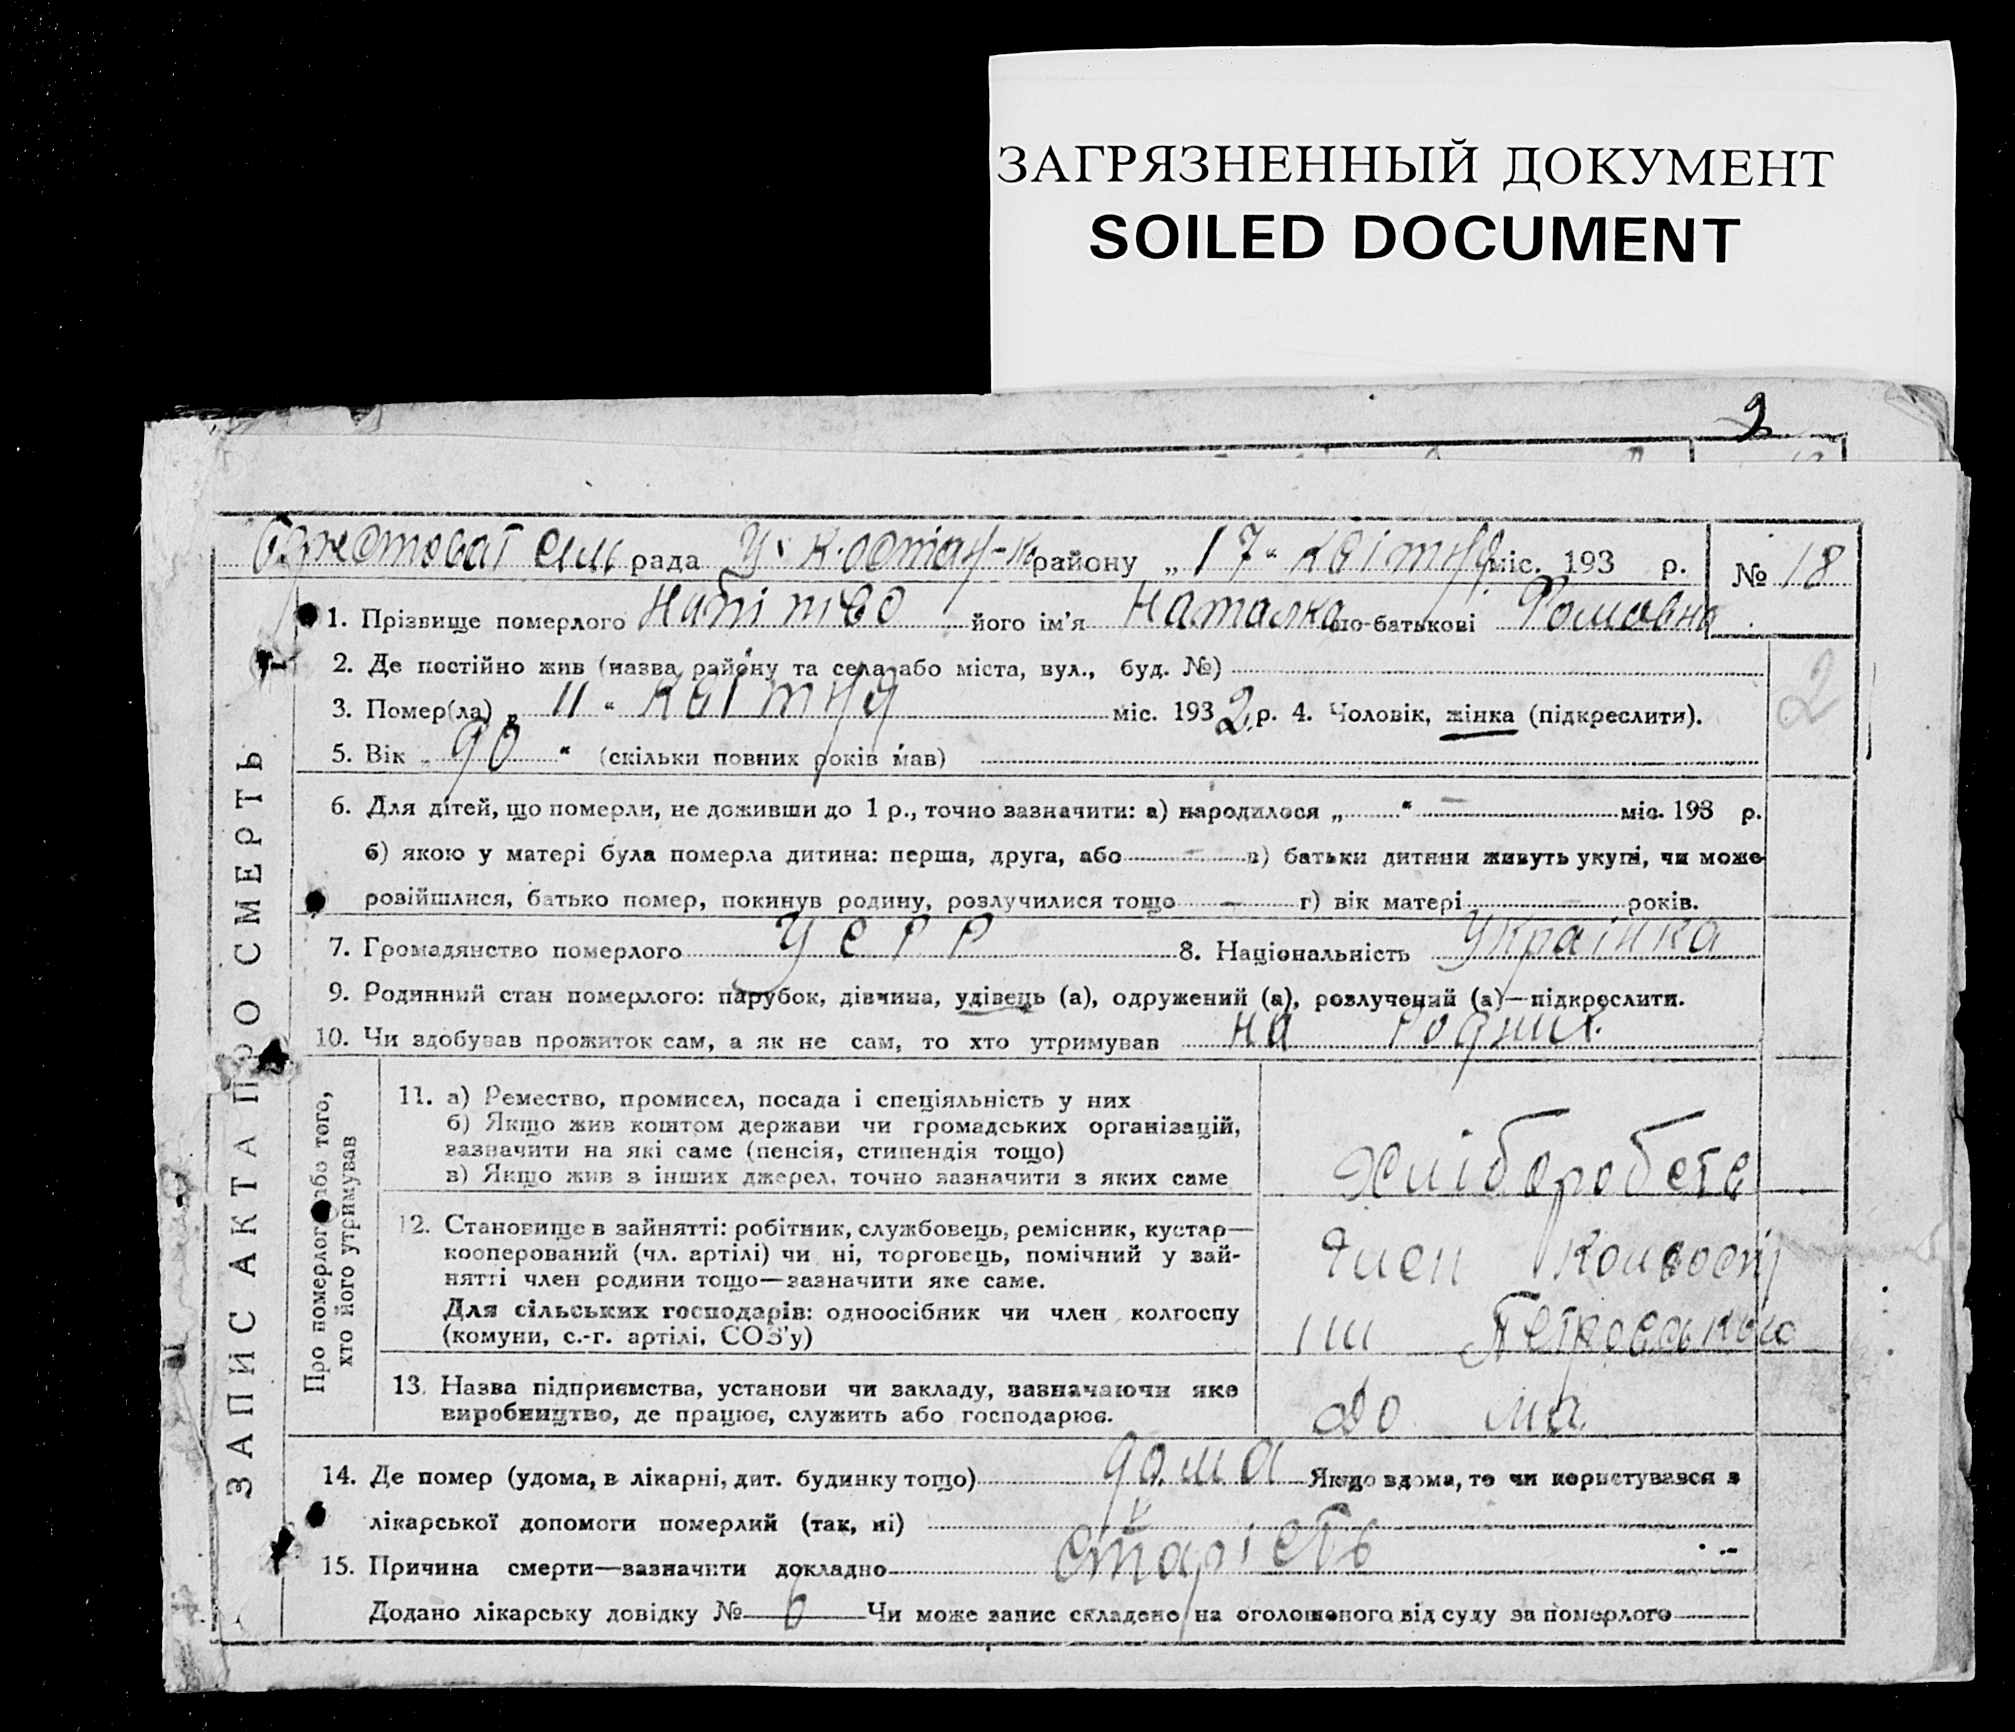 ЗАГРЯЗНЕННЫЙ ДОКУМЕНТ
SOILED DOCUMENT
2
рада району „17“ квітня міс. 193 р. № 18
1. Прізвище померлого його ім'я Наталка по-батькові Романівна
2. Де постійно жив (назва району та села або міста, вул., буд. №)
2
3. Помер(ла) „11“ квітня міс. 1932 р. 4. Чоловік, жінка (підкреслити).
5. Вік „90“ (скільки повних років мав)
6. Для дітей, що померли, не доживши до 1 р., точно зазначити: а) народилося „ “ — міс. 193 р.
б) якою у матері була померла дитина: перша, друга, або — в) батьки дитини живуть укупі, чи може
розійшлися, батько помер, покинув родину, розлучилися тощо — г) вік матері — років.
7. Громадянство померлого УСРР 8. Національність Українка
9. Родинний стан померлого: парубок, дівчина, удівець (а), одружений (а), розлучений (а)—підкреслити.
10. Чи здобував прожиток сам, а як не сам, то хто утримував на
ЗАПИС АКТА ПРО СМЕРТЬ
Про померлого або того,
хто його утримував
11. а) Ремество, промисел, посада і спеціяльність у них
б) Якщо жив коштом держави чи громадських організацій,
зазначити на які саме (пенсія, стипендія тощо)
в) Якщо жив з інших джерел, точно зазначити з яких саме
12. Становище в зайнятті: робітник, службовець, ремісник, кустар—
кооперований (чл. артілі) чи ні, торговець, помічний у зай-
нятті член родини тощо—зазначити яке саме.
Для сільських господарів: одноосібник чи член колгоспу
(комуни, с.-г. артілі, СОЗ'у)
член
Петровського
13. Назва підприємства, установи чи закладу, зазначаючи яке
виробництво, де працює, служить або господарює.
до ма
14. Де помер (удома, в лікарні, дит. будинку тощо) дома Якщо вдома, то чи користувався з
лікарської допомоги померлий (так, ні)
15. Причина смерти—зазначити докладно старість
Додано лікарську довідку № 6 Чи може запис складено на оголошеного від суду за померлого